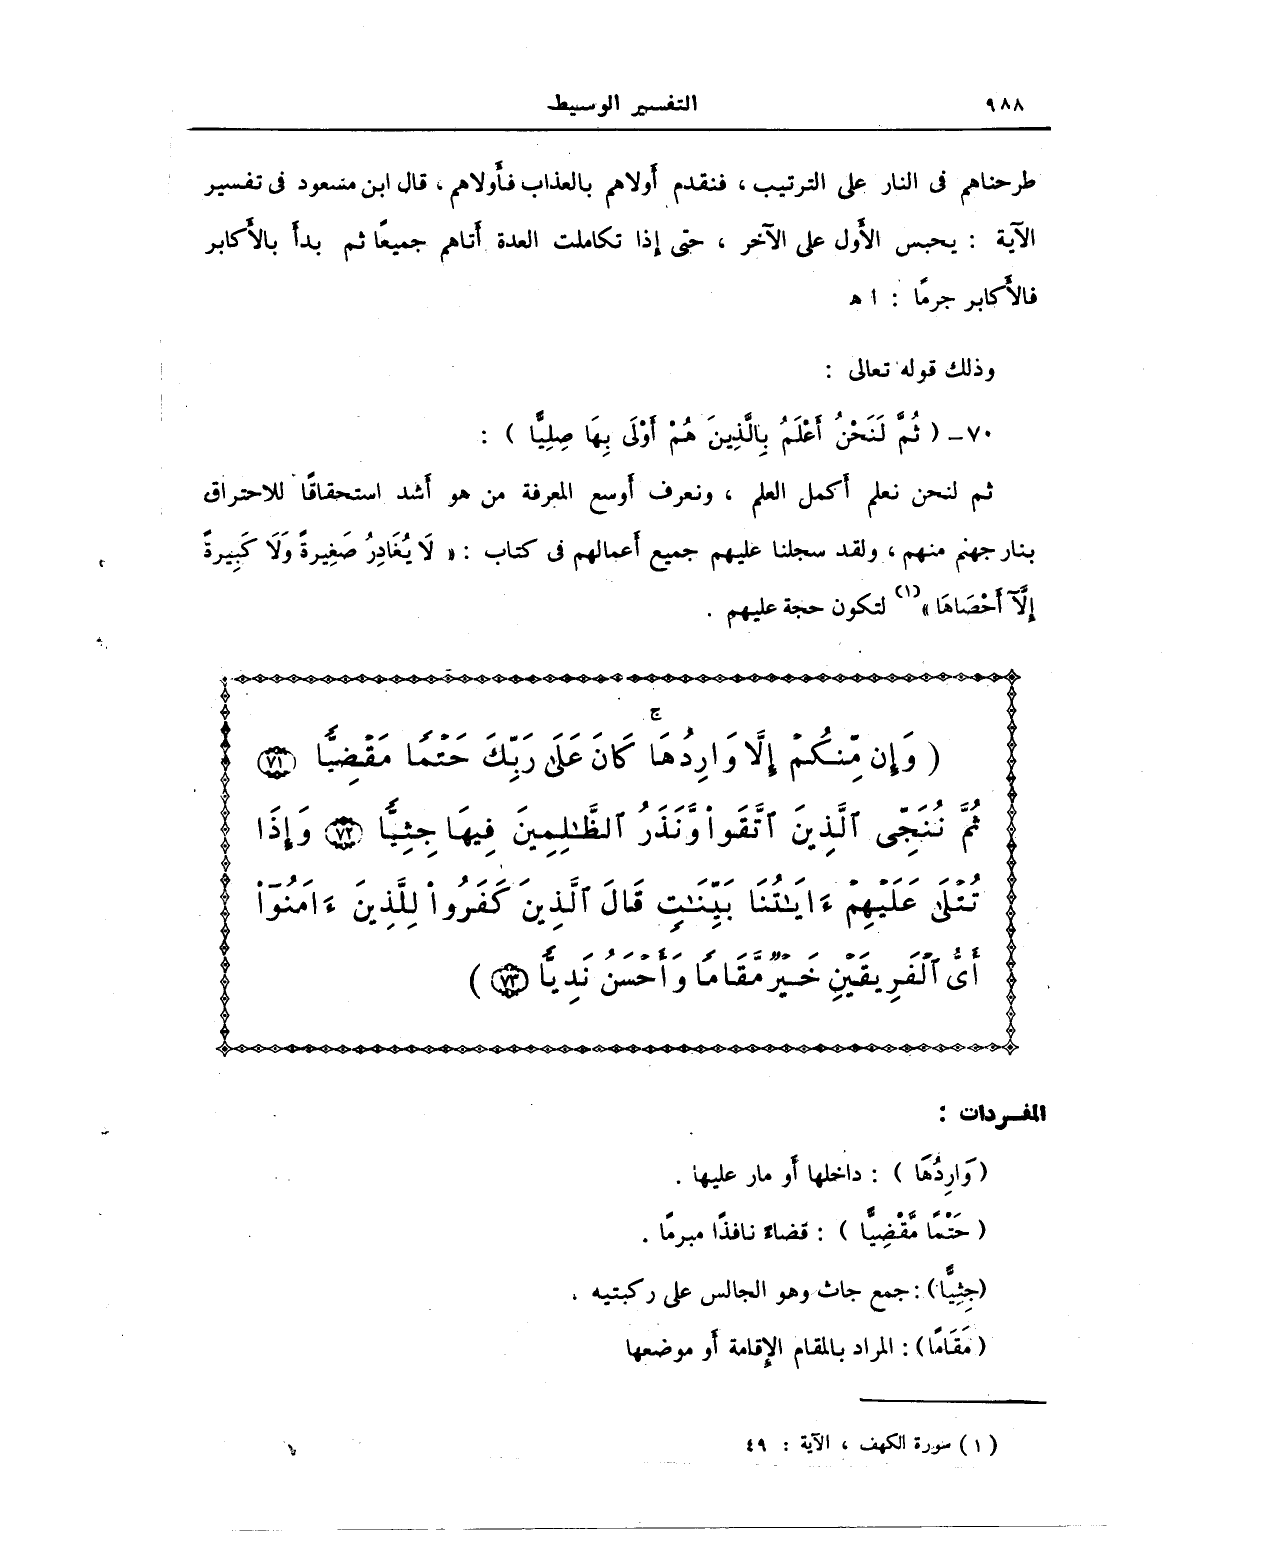 ٩٨٨ التفسير الوسيط
طرحناهم فى النار على الترتيب ، فنقدم أولاهم بالعذاب فأولاهم ، قال ابن مسعود فى تفسير
الآية : يحبس الأول على الآخر ، حتى إذا تكاملت العدة أتاهم جميعًا ثم بدأ بالأكابر
فالأكابر جرمًا : ا ه
وذلك قوله تعالى :
٧٠ـ ( ثُمَّ لَنَحْنُ أَعْلَمُ بِالَّذِينَ هُمْ أَوْلَى بِهَا صِلِيًّا ) :
ثم لنحن نعلم أكمل العلم ، ونعرف أوسع المعرفة من هو أشد استحقاقًا للاحتراق
بنار جهنم منهم ، ولقد سجلنا عليهم جميع أعمالهم فى كتاب : « لَا يُغَادِرُ صَغِيرةً وَلَا كَبِيرةً
إِلَّآ أَحْصَاهَا »(١) لتكون حجة عليهم .
( وَإِن مِّنكُمْ إِلَّا وَارِدُهَا ۚ كَانَ عَلَىٰ رَبِّكَ حَتْمًا مَّقْضِيًّا ٧١
ثُمَّ نُنَجِّى ٱلَّذِينَ ٱتَّقَوا۟ وَّنَذَرُ ٱلظَّٰلِمِينَ فِيهَا جِثِيًّا ٧٢ وَإِذَا
تُتْلَىٰ عَلَيْهِمْ ءَايَٰتُنَا بَيِّنَٰتٍ قَالَ ٱلَّذِينَ كَفَرُوا۟ لِلَّذِينَ ءَامَنُوٓا۟
أَىُّ ٱلْفَرِيقَيْنِ خَيْرٌ مَّقَامًا وَأَحْسَنُ نَدِيًّا ٧٣ )
المفـردات :
( وَارِدُهَا ) : داخلها أو مار عليها .
( حَتْمًا مَّقْضِيًّا ) : قضاءً نافذًا مبرمًا .
(جِثِيًّا) : جمع جاث وهو الجالس على ركبتيه .
(مَقَامًا) : المراد بالمقام الإقامة أو موضعها
(١) سورة الكهف ، الآية : ٤٩